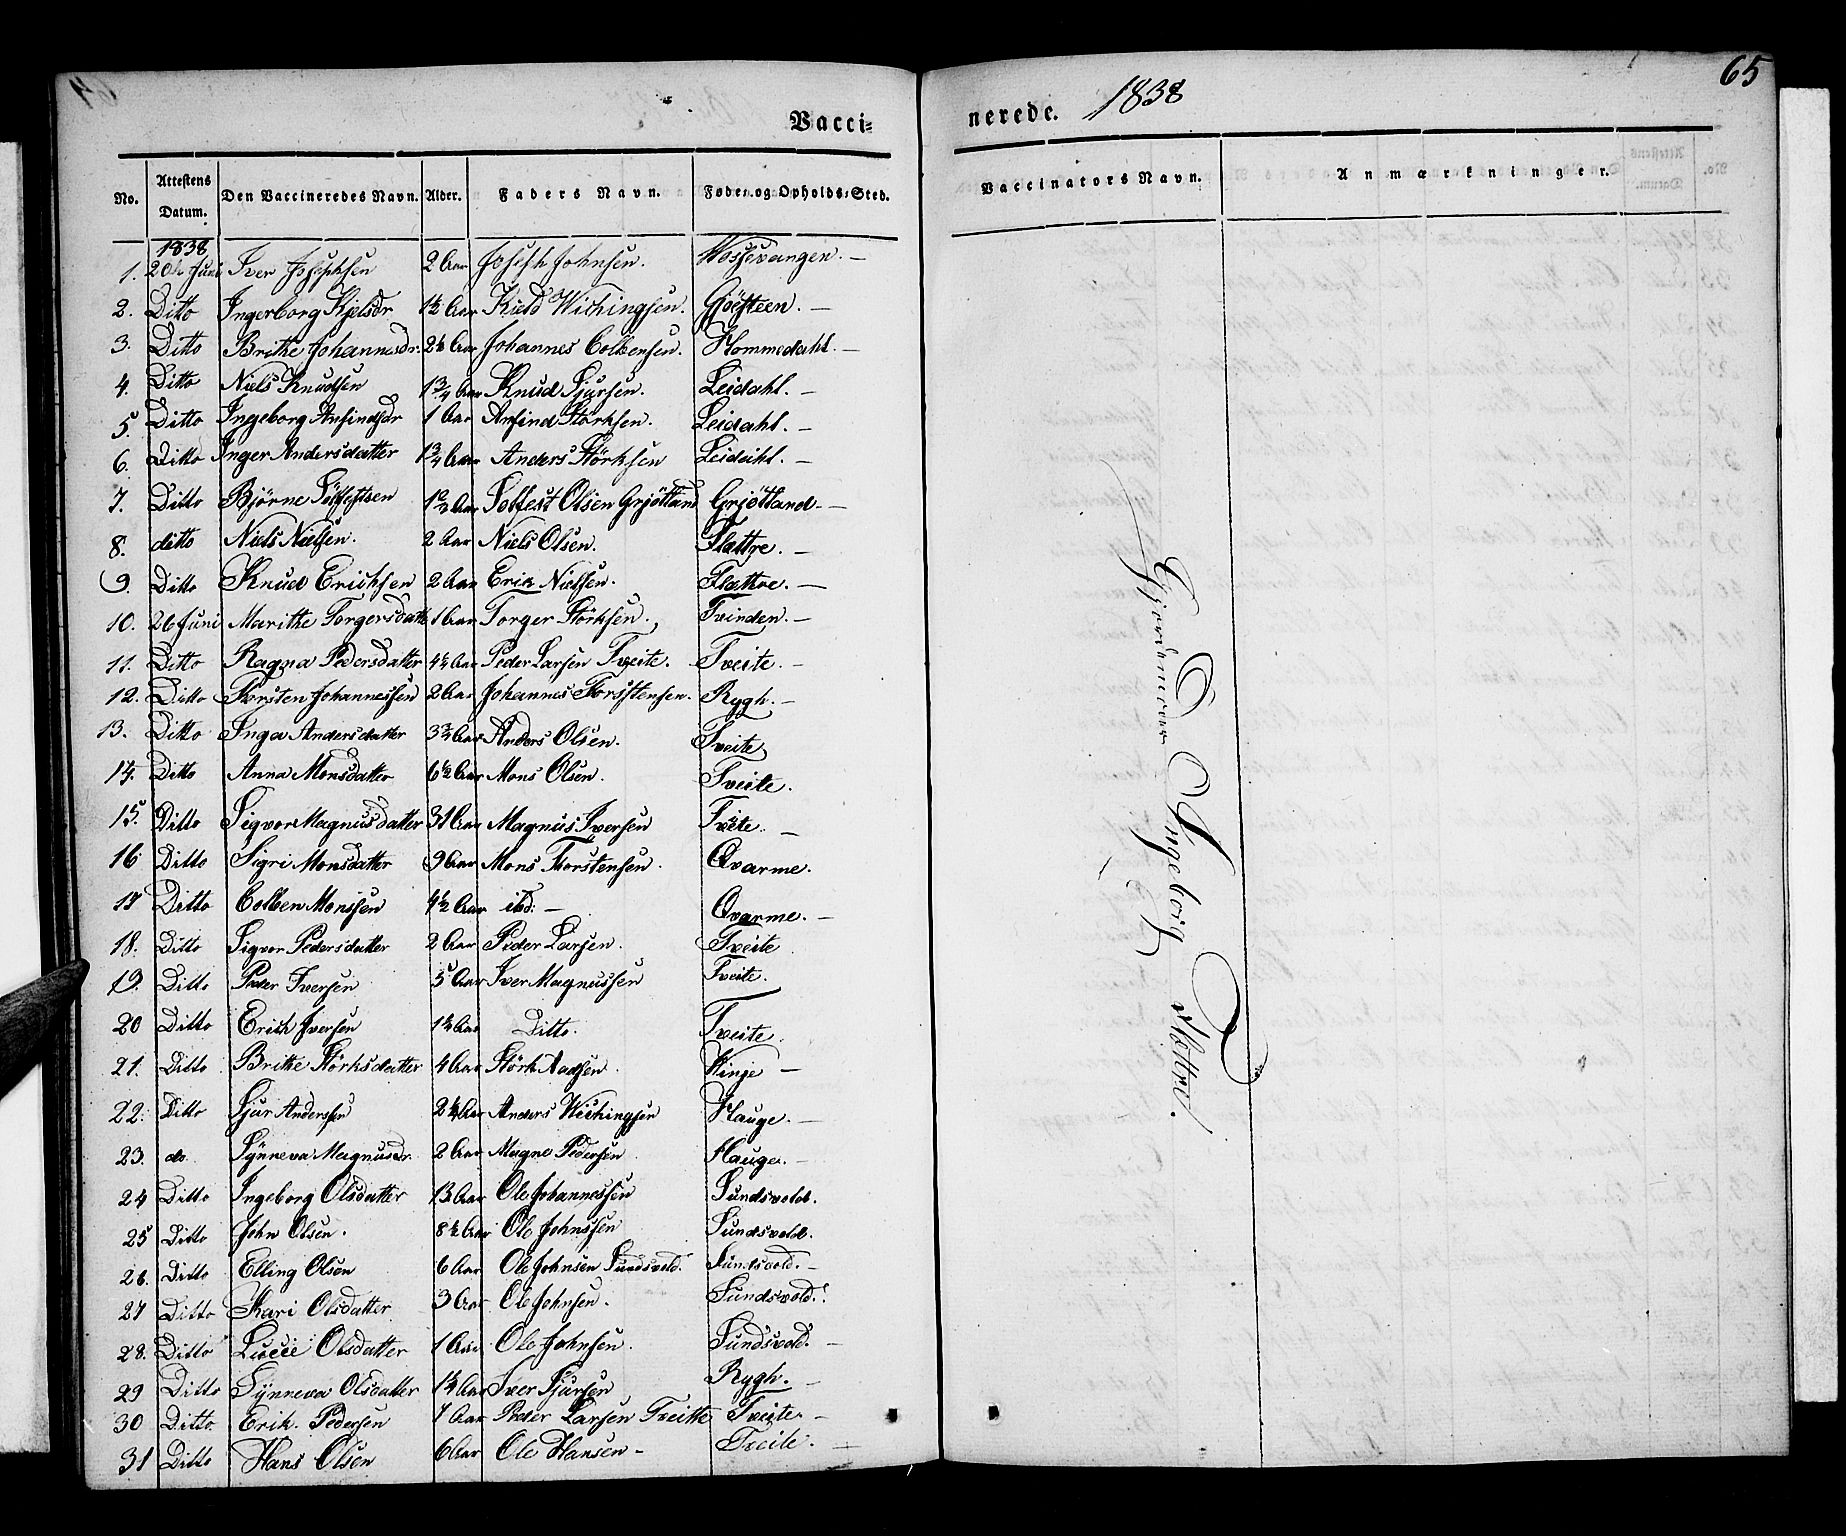 65
Vacci-
nerede. 1838
No. Attestens Datum. Den Vaccineredes Navn. Alder. Faders Navn. Føde- og Opholds-Sted. Vaccinators Navn. Anmærkninger.
1838
1. 20de Juni Iver Josephsen 2 Aar Joseph Johnsen. Vossevangen. —
2. Ditto Ingerborg Kjelsdr 1½ Aar Kield Wichingsen. Gjøesteen. —
3. Ditto Brithe Johannesdr. 2½ Aar Johannes Colbensen. Hommedahl. —
4. Ditto Niels Knudsen 1¾ Aar Knud Sjursen. Leidahl. —
5. Ditto Ingeborg Anfindsdr 1 Aar Anfind Störksen. Leidahl. —
6. Ditto Inger Andersdatter 1¾ Aar Anders Störksen Leidahl. —
7. Ditto Bjørne Sölfestsen 1⅔ Aar Solfest Olsen Grjötland Grjötland. —
8. ditto Niels Nielsen. 2 Aar Niels Olsen. Flættre. —
9. Ditto Knud Erichsen 2 Aar Erik Nielsen. Flæthre. —
10. 26 Juni Marithe Torgersdatt 1 Aar Torger Störksen. Tvinden. —
11. Ditto Ragna Pedersdatter 4½ Aar Peder Larsen Tveite. Tveite. —
12. Ditto Torsten Johannessen 2 Aar Johannes Torsstensen. Rygh. —
13. Ditto Inga Andersdatter 3¾ Aar Anders Olsen. Tveite
14. Ditto Anna Monsdatter 6½ Aar Mons Olsen. Tveite.
15. Ditto Sigvor Magnusdatter 31 Aar Magnus Iversen Tveite. —
16 Ditto Sigri Monsdatter 9 Aar Mons Torstensen. Qvarme.
17 Ditto Colben Monssen 4½ Aar ibd. — Qvarme. —
18. Ditto Sigvor Pedersdatter 2 Aar Peder Larsen. Tveite
19. Ditto Peder Iversen 5 Aar Iver Magnussen Tveite.
20 Ditto Erich Iversen 1½ Aar Ditto. Tveite.
21. Ditto Brithe Störksdatter 4 Aar Störk Aadsen. Winje —
22. Ditto Sjur Andersen 2¼ Aar Anders Wichingsen Hauge. —
23. do. Synneva Magnusdr. 2 Aar Magne Pedersen Hauge. —
24 Ditto Ingeborg Olsdatter 13 Aar Ole Johannessen Sundsvold.
25 Ditto John Olsen. 8½ Aar Ole Johnssen Sundsvold.
26. Ditto Elling Olsen 6 Aar Ole Johnsen Sundsvold. Sundsvold. —
27 Ditto Kari Olsdatter 3 Aar Ole Johnsen. Sundsvold.
28. Ditto Lucie Olsdatter 1 Aar Ole Johnsen. Sundsvold. —
29 Ditto Synneva Olsdatter 1¼ Aar Iver Sjursen Rygh. —
30 Ditto Erik. Pedersen 7 Aar Peder Larsen Tveitte Tveite —
31 Ditto Hans Olsen 6 Aar Ole Hansen — Tveite. —
Gjordemoer Ingeborg Flættre.